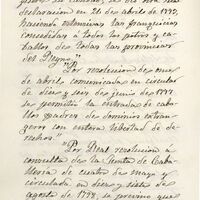 declaracion en 21 de abril de 1770,
haciendo extensivas las franquicias
concedidas á todos los potros y ca-
ballos de todas las provincias
del Reyno."
"Por resolucion de nueve
de abril comunicada en circular
de diez y seis de junio de 1777
se permitió la entrada de caba-
llos padres de dominios extran-
geros con entera libertad de de-
rechos."
"Por Real resolucion á
consulta de la Junta de Caba-
lleria de cuatro de mayo y
circulada en diez y siete de
agosto de 1778, se previno que